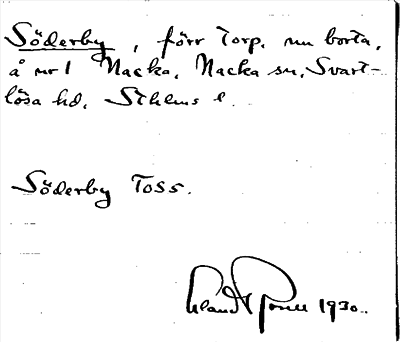 Söderby, förr Torp. nu borta,
å nr 1 Nacka, Nacka sn, Svart-
lösa hd. Sthlms l.
Söderby Toss.
1930.